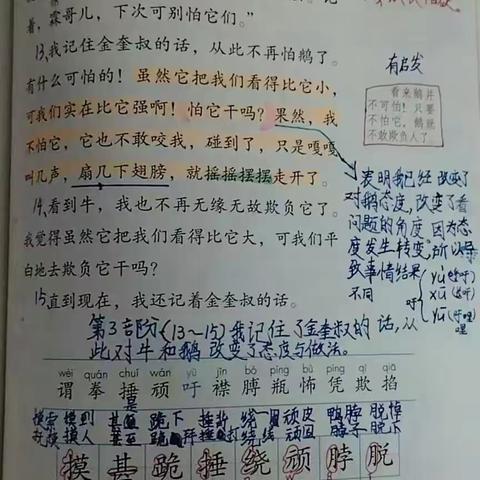 着，霖哥儿，下次可别怕它们。”
13,我记住金奎叔的话，从此不再怕鹅了。
有什么可怕的！虽然它把我们看得比它小，
可我们实在比它强啊！怕它干吗？果然，我
不怕它，它也不敢咬我，碰到了，只是嘎嘎
叫几声，扇几下翅膀，就摇摇摆摆走开了。
14,看到牛，我也不再无缘无故欺负它了。
我觉得虽然它把我们看得比它大，可我们平
白地去欺负它干吗？
15直到现在，我还记着金奎叔的话。
有启发
看来鹅并
不可怕！只要
不怕它，鹅就
不敢欺负人了。
表明我已经改变了
对鹅态度，改变了看
问题的角度。因为态
度发生转变，所以导
致事情结果
不同
吁
yù(呼吁)
xū(长吁)
yū(吁哩
哩
第3部分(13~15)我记住了金奎叔的话，从
此对牛和鹅改变了态度与做法。
wèi quán chuí wán yū jīn bó píng bù píng qī qiā
谓 拳 捶 顽 吁 襟 脖 瓶 怖 凭 欺 掐
摸索 摸到 甚至 跪下 捶背 绕圈 顽皮 鸭脖 脱掉
摸人 甚至 跪拜 捶打 绕线 顽固 脖子 脱下
摸 甚 跪 捶 绕 顽 脖 脱